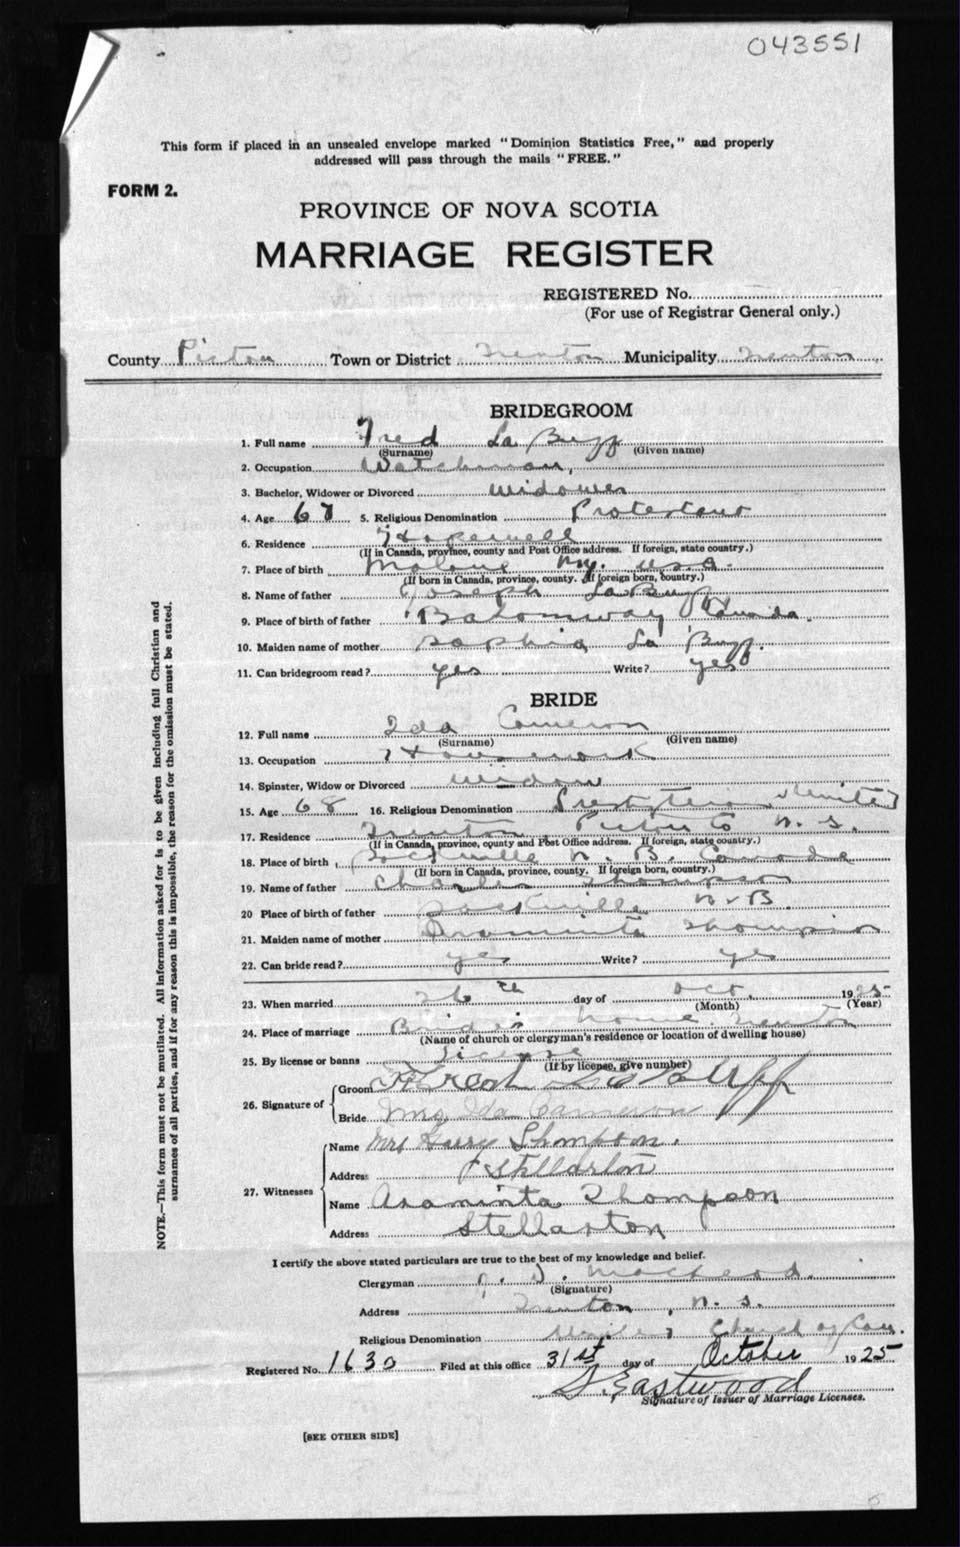 043551
This form if placed in an unsealed envelope marked "Dominion Statistics Free," and properly
addressed will pass through the mails "FREE."
FORM 2.
PROVINCE OF NOVA SCOTIA
MARRIAGE REGISTER
REGISTERED No.
(For use of Registrar General only.)
County Pictou Town or District Trenton Municipality Trenton
BRIDEGROOM
1. Full name Fred La Buff
(Surname) (Given name)
2. Occupation Watchman,
3. Bachelor, Widower or Divorced widower
4. Age 5. Religious Denomination Protestant
6. Residence Hopewell
(If in Canada, province, county and Post Office address. If foreign, state country.)
7. Place of birth Malone Ny. U.S.A.
(If born in Canada, province, county. If foreign born, country.)
8. Name of father Joseph La Buff
9. Place of birth of father Canada.
10. Maiden name of mother Sophia La Buff.
11. Can bridegroom read? yes Write? yes
BRIDE
12. Full name Ida Cameron
(Surname) (Given name)
13. Occupation Housework
14. Spinster, Widow or Divorced widow
15. Age 68 16. Religious Denomination Presbyterian United
17. Residence Trenton Pictou Co N. S.
(If in Canada, province, county and Post Office address. If foreign, state country.)
18. Place of birth Sackville N. B. Canada
(If born in Canada, province, county. If foreign born, country.)
19. Name of father Charles Thompson
20 Place of birth of father Sackville N. B.
21. Maiden name of mother Thompson
22. Can bride read? yes Write? yes
23. When married 26th day of Oct. 1925
(Month) (Year)
24. Place of marriage Bride's home Trenton
(Name of church or clergyman's residence or location of dwelling house)
25. By license or banns License
(If by license, give number)
26. Signature of
Groom Fred La Buff
Bride Mrs Ida Cameron
27. Witnesses
Name Mrs Harry Thompson.
Address Stellarton
Name Araminta Thompson
Address Stellarton
I certify the above stated particulars are true to the best of my knowledge and belief.
Clergyman D. MacLeod.
(Signature)
Address Trenton, N. S.
Religious Denomination United Church of Can.
Registered No. 1630 Filed at this office 31st day of October 1925
S. Eastwood
Signature of Issuer of Marriage Licenses.
[SEE OTHER SIDE]
NOTE.—This form must not be mutilated. All information asked for is to be given including full Christian and
surnames of all parties, and if for any reason this is impossible, the reason for the omission must be stated.